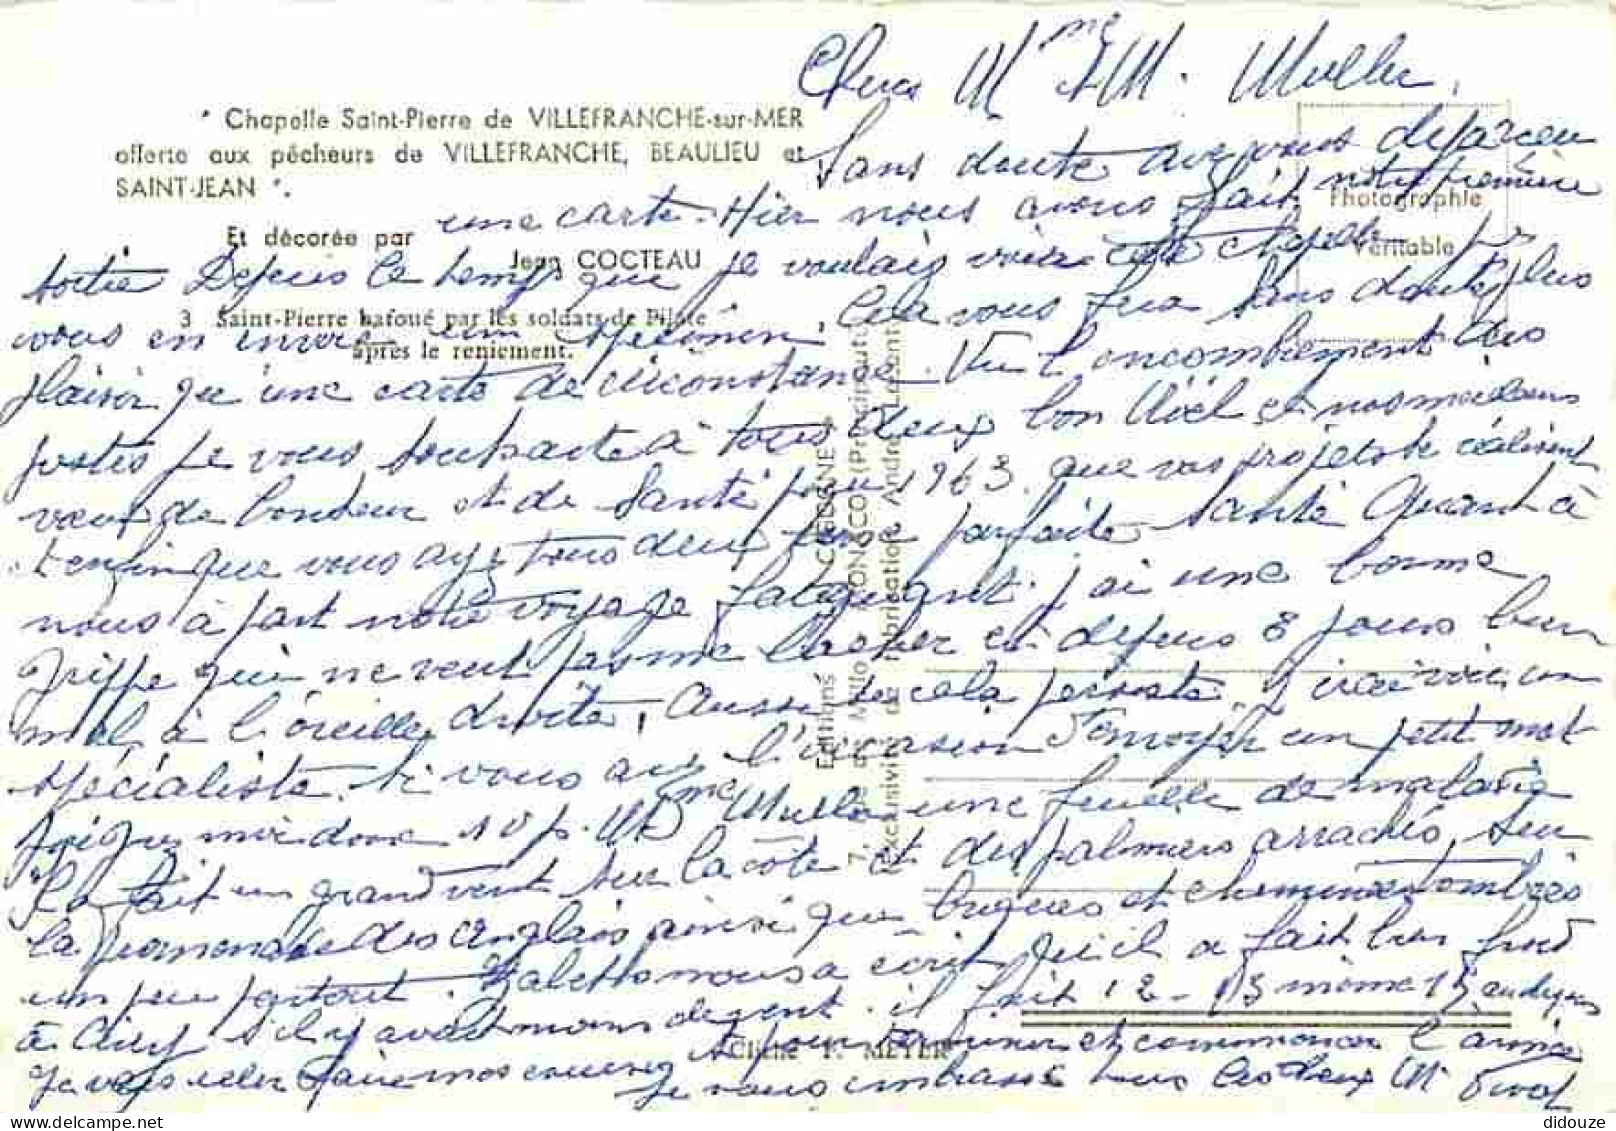 Chers Mme et M. Muller,
" Chapelle Saint-Pierre de VILLEFRANCHE-sur-MER
offerte aux pêcheurs de VILLEFRANCHE, BEAULIEU et
SAINT-JEAN ".
Et décorée par
Jean COCTEAU
3 Saint-Pierre bafoué par les soldats de Pilate
après le reniement.
Photographie
Véritable
Sans doute avez vous déjà reçu
une carte. Hier nous avons fait notre première
sortie Depuis le temps que je voulais voir cette chapelle je
vous en envoie un spécimen, Cela vous fera sans doute plus
plaisir qu'une carte de circonstance. Vu l'encombrement des
postes je vous souhaite à tous deux bon Noël et nos meilleurs
vœux de bonheur et de santé pour 1963. que vos projets se réalisent
et enfin que vous ayez tous deux une parfaite santé Quant à
nous à part notre voyage fatiguant. j'ai une bonne
grippe qui ne veut pas me lacher et depuis 8 jours bien
mal à l'oreille droite, aussi si cela persiste j'irai voir un
spécialiste. Si vous avez l'occasion d'envoyer un petit mot
joignez moi donc 10 p. Mme Muller une feuille de maladie
Il a fait un grand vent sur la côte et des palmiers arrachés sur
la promenade des Anglais ainsi que briques et cheminées tombées
un peu partout. nous a écrit qu'il a fait bien froid
à s'il y avait moins de vent. il fait 12 - 13 même 15 au dessus
je vais aller faire mes courses et pour terminer et commencer l'année
je vous embrasse tous les deux M.
Editions
7, rue de Millo MONACO (Principauté)
Exclusivité de fabrication André Leconte
Cliché P. MEYER
didouze